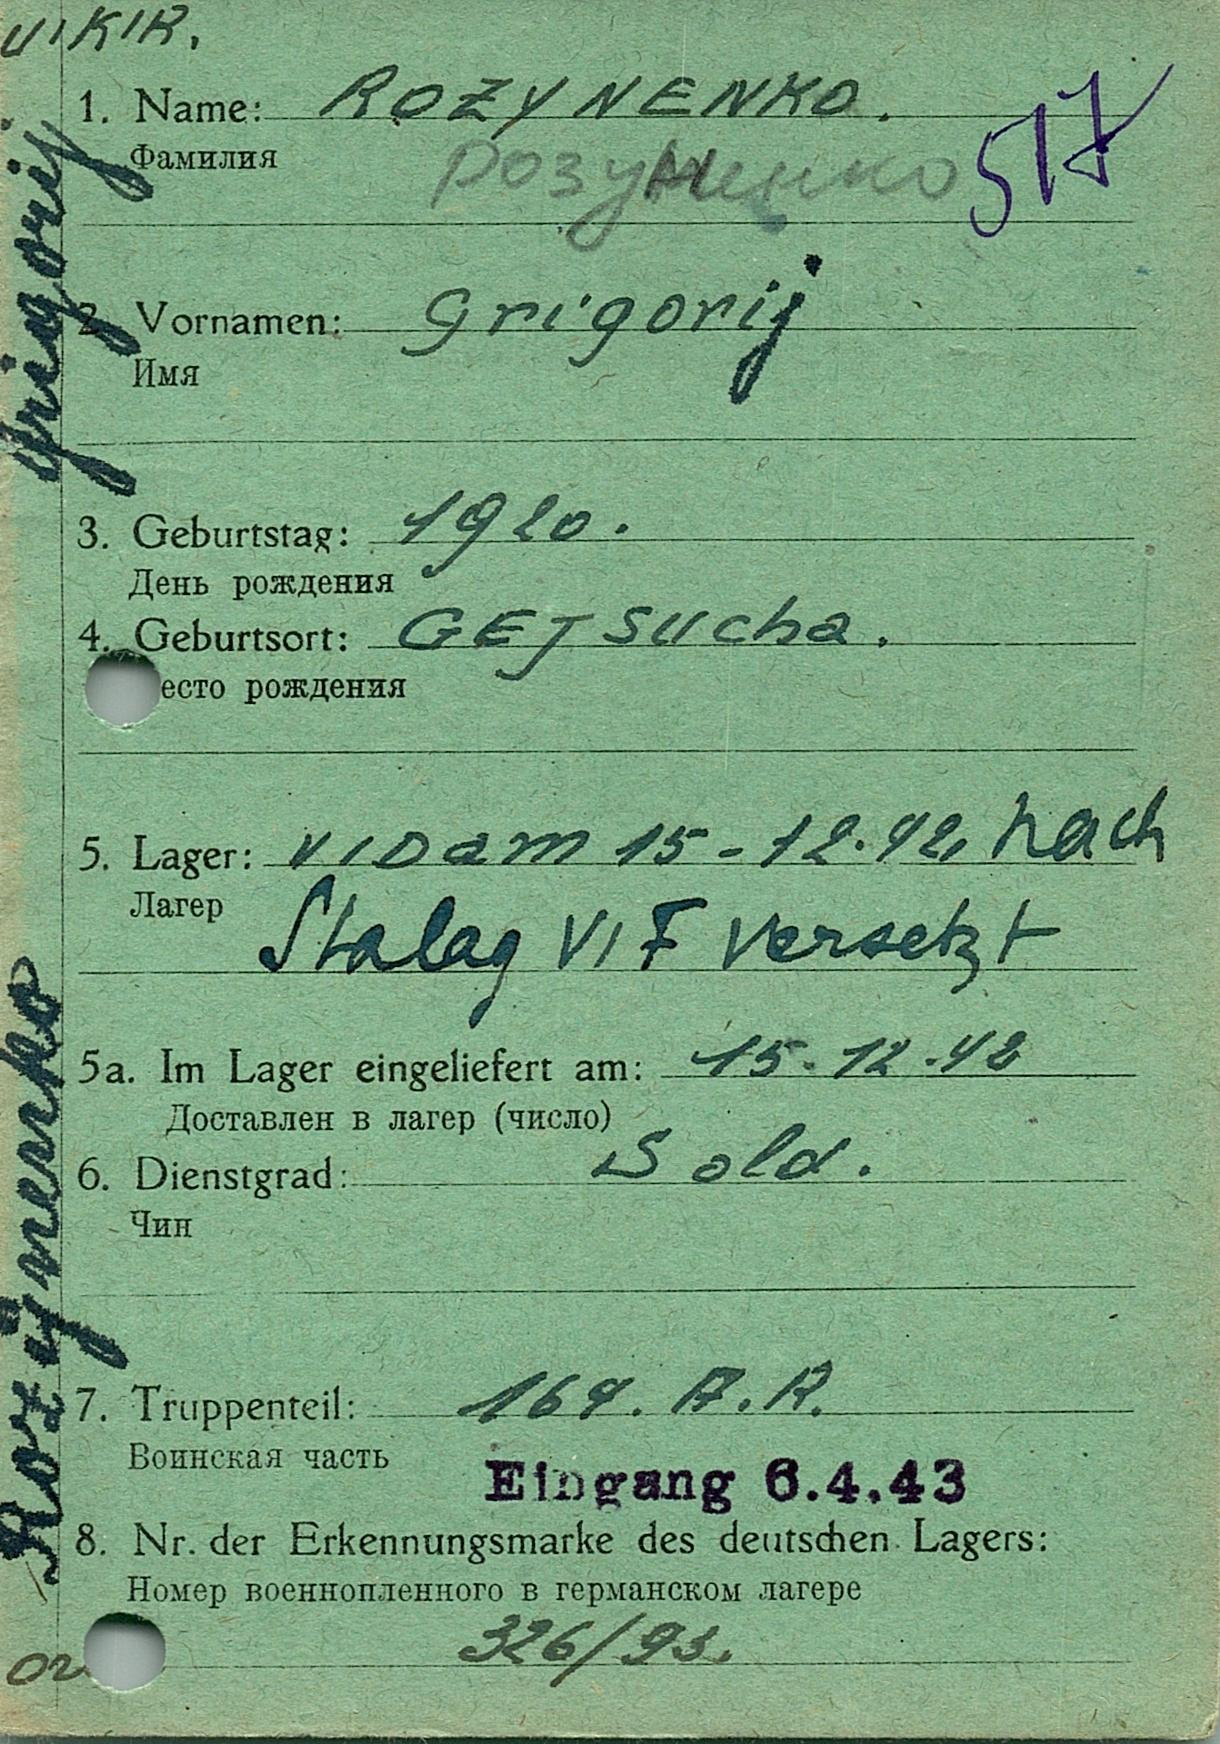 UKR.
1. Name: ROZYNENKO.
Фамилия
Розуненко
517
2. Vornamen: Grigorij
Имя
3. Geburtstag: 1920.
День рождения
4. Geburtsort: GEJSUcha.
есто рождения
5. Lager: VID am 15-12.42, nach
Лагер
Stalag VI F versetzt
5a. Im Lager eingeliefert am: 15.12.42
Доставлен в лагер (число)
6. Dienstgrad: Sold.
Чин
7. Truppenteil: 164. A.R.
Воинская часть
Eingang 6.4.43
8. Nr. der Erkennungsmarke des deutschen Lagers:
Номер военнопленного в германском лагере
326/93.
Rozynenko Grigorij